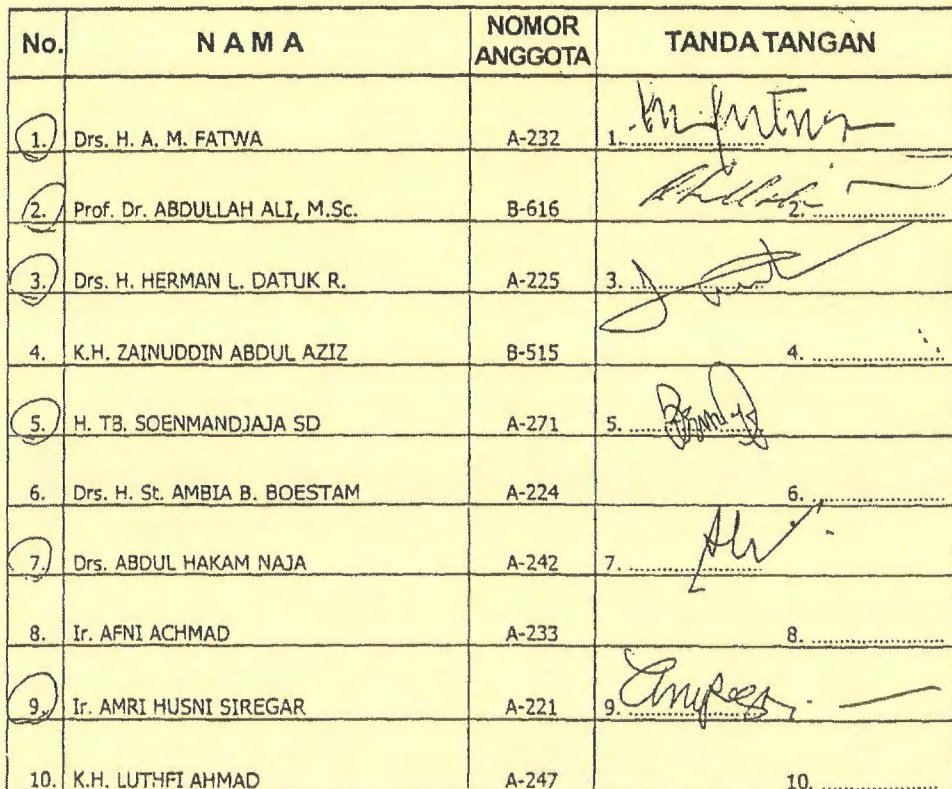 No. NAMA NOMOR ANGGOTA TANDA TANGAN
1. Drs. H. A. M. FATWA A-232 1. ....................
2. Prof. Dr. ABDULLAH ALI, M.Sc. B-616 2. ....................
3. Drs. H. HERMAN L. DATUK R. A-225 3. ....................
4. K.H. ZAINUDDIN ABDUL AZIZ B-515 4. ....................
5. H. TB. SOENMANDJAJA SD A-271 5. ....................
6. Drs. H. St. AMBIA B. BOESTAM A-224 6. ....................
7. Drs. ABDUL HAKAM NAJA A-242 7. ....................
8. Ir. AFNI ACHMAD A-233 8. ....................
9. Ir. AMRI HUSNI SIREGAR A-221 9. ....................
10. K.H. LUTHFI AHMAD A-247 10. ....................